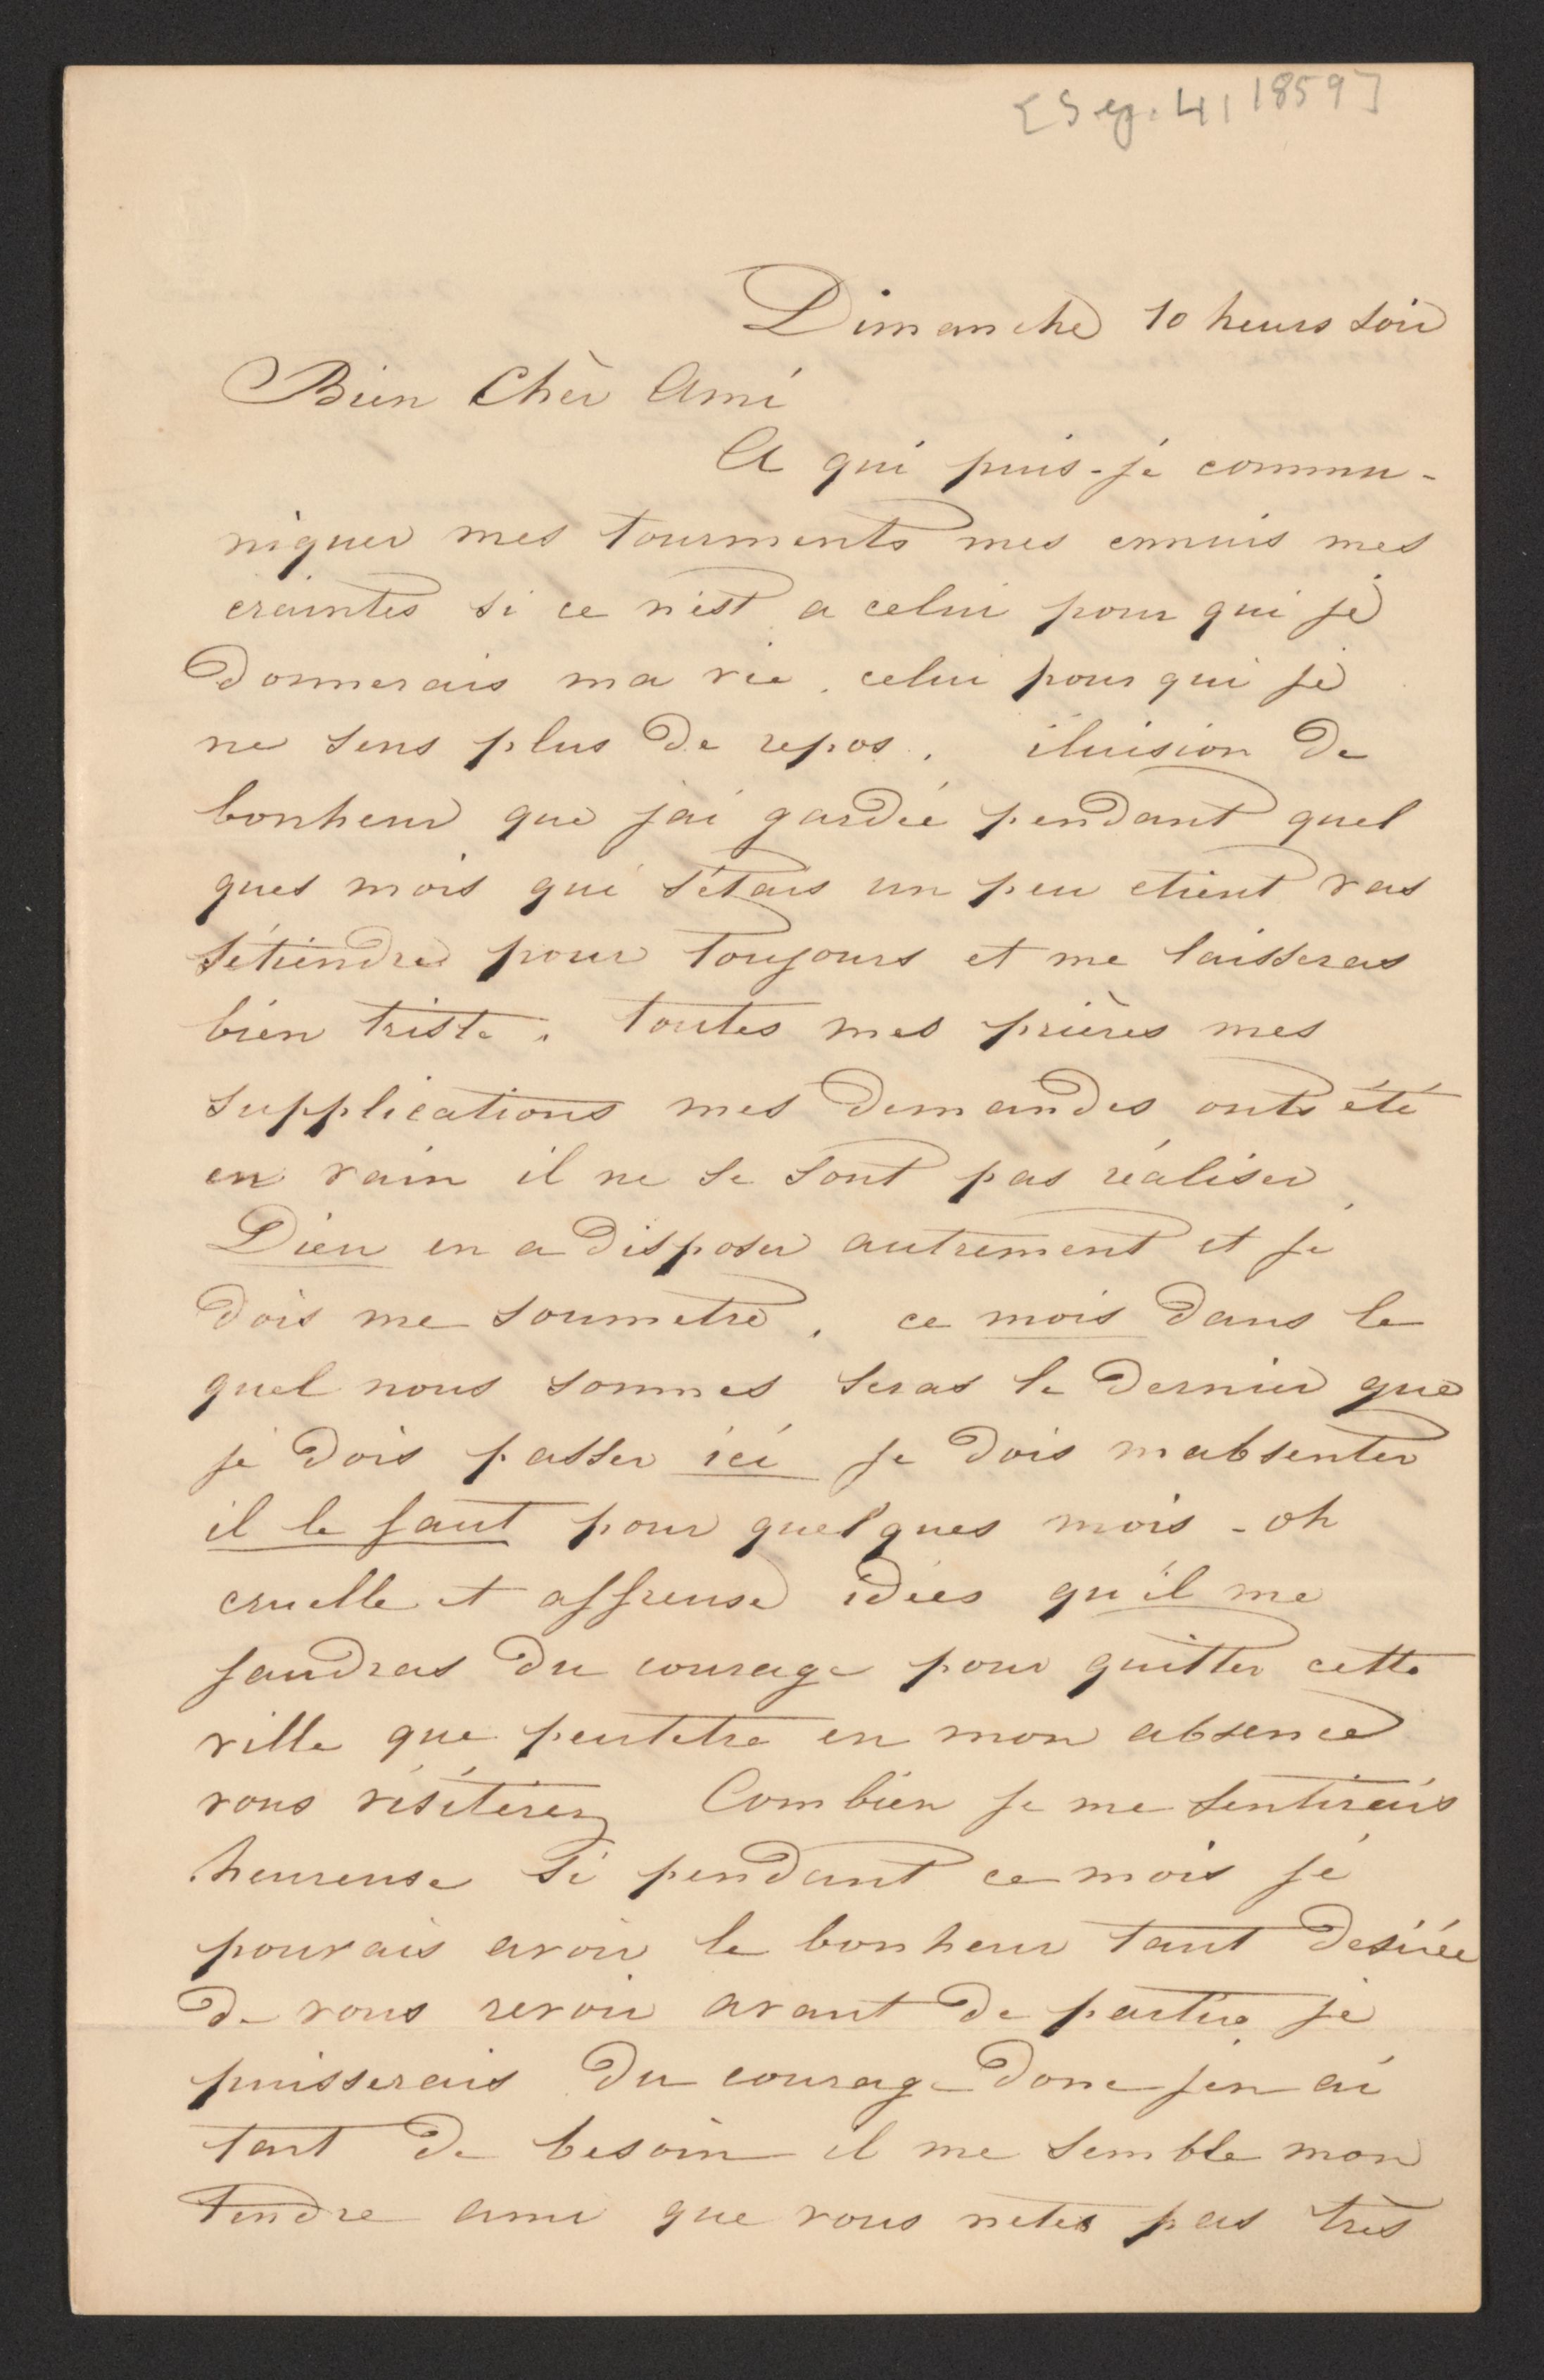 [Sep. 4, 1859]
Dimanche 10 heurs soir
Bien Chèr Ami
A qui puis-je commu-
niquer mes tourments mes ennuis mes
craintes si ce n'est a celui pour qui je
donnerais ma vie. celui pour qui je
ne sens plus de repos. iluision de
bonheur que j'ai gardée pendant quel
ques mois qui s'étais un peu etient vas
s'étiendre pour toujours et me laisseras
bien triste. toutes mes prières mes
supplications mes demandes onts été
en vain il ne se sont pas réaliser
Dieu en a disposer autrement et je
dois me soumetre. ce mois dans le
quel nous sommes seras le dernier que
je dois passer ici je dois mabsenter
il le faut pour quelques mois - oh
cruelle et affreuse idées qu'il me
faudras du courage pour quitter cette
ville que peutetre en mon absence
vous visiterez Combien je me sentirais
heureuse si pendant ce mois je
pouvais avoir le bonheur tant desirée
de vous revoir avant de partire je
puisserais du courage donc j'en ai
tant de besoin il me semble mon
tendre ami que vous netes pas très